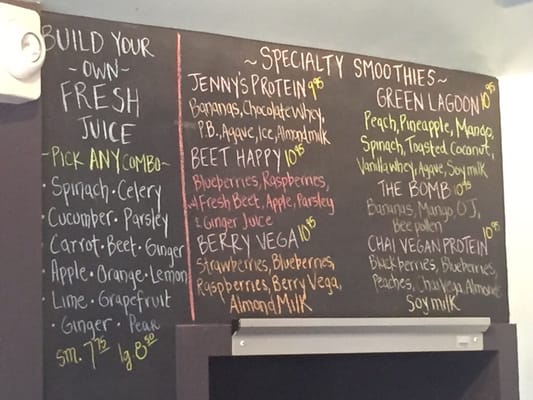 BUILD YOUR
~OWN~
FRESH
JUICE
~PICK ANY COMBO~
· Spinach · Celery
Cucumber · Parsley
· Carrot · Beet · Ginger
· Apple · Orange · Lemon
· Lime · Grapefruit
· Ginger · Pear
sm. 7.75 lg. 8.50
~SPECIALTY SMOOTHIES~
JENNY'S PROTEIN 9.95
Bananas, Chocolate Whey,
P.B., Agave, Ice, Almond milk
BEET HAPPY 10.95
Blueberries, Raspberries,
w/ Fresh Beet, Apple, Parsley
& Ginger Juice
BERRY VEGA 10.95
Strawberries, Blueberries,
Raspberries, Berry Vega,
Almond Milk
GREEN LAGOON 10.95
Peach, Pineapple, Mango,
Spinach, Toasted Coconut,
Vanilla whey, Agave, Soy milk
THE BOMB 10.95
Bananas, Mango, OJ,
Bee pollen
CHAI VEGAN PROTEIN 10.95
Blackberries, Blueberries,
Peaches, Chai Vega, Almond
Soy milk